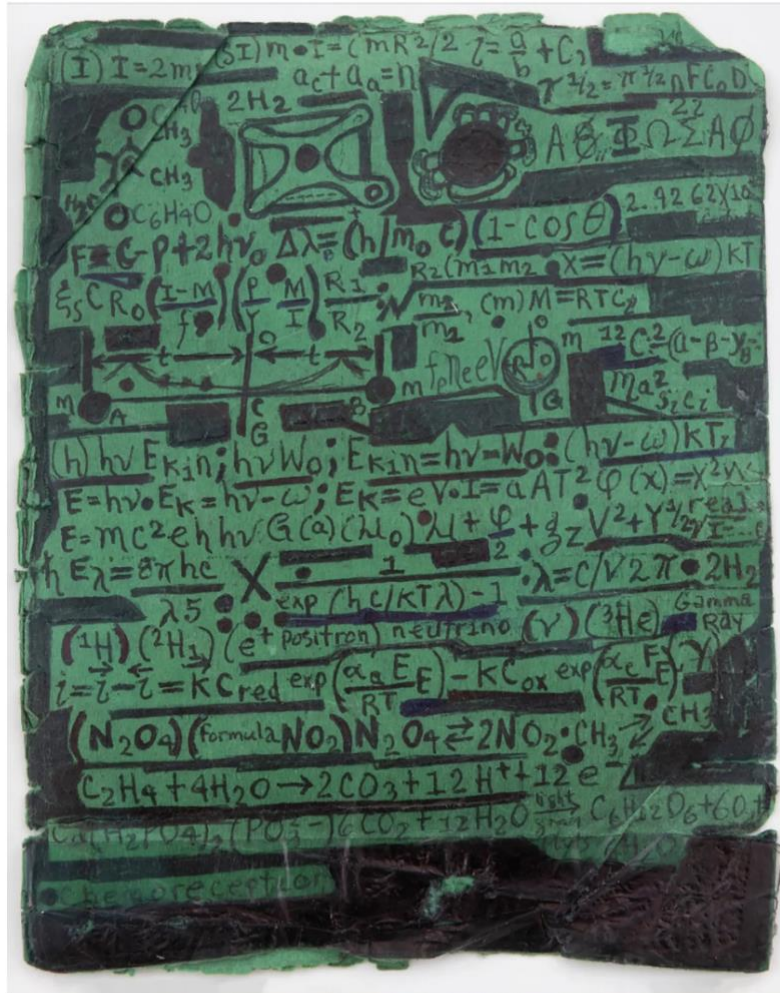 (I) I=2m (SI) m•I=(mR2/2 i=a/b+C2
ac+aa=n π1/2=π1/2nFCoD
2H2 22
CH3 A Φ Ω Σ A Ø
CH3
H2C
C6H4O 2..92 62X10
F=G-P+2hν. Δλ=(h/moc)(1-cosθ)
R2(m1m2 •X=(hν-ω)KT
ξsCRo(I-M/f)(P/Y M/I)R1/R2 √m2/m2, (m)M=RTC2
t C t o m 12C 2/2(α-β-γ
m A C B m fpNeeV G ma2 sici
G
(h)hνEKin; hνWo; EKin=hν-Wo: (hν-ω)KTi
E=hν•EK=hν-ω; EK=eV•I=aAT2 φ(x)=X2
E=mc2ehhνG(a)(μo)•μ+φ/2+gzV2+Y1/2y real/I=
hEλ=8πhc/λ5 X 1/exp(hc/KTλ)-1 •λ=C/V2π•2H2
(1H)(2H1)(e+ positron) neutrino (ν)(3He) Gamma Ray
i=i-i=KCred exp(αaE/RT E)-KCox exp(αcF/RT E)γ
(N2O4)(formulaNO2)N2O4⇄2NO2•CH3 ⇄ CH3
C2H4+4H2O→2CO3+12H++12e-
Ca(H2PO4)2(PO3-)6CO2+12H2O light→ C6H12O6+6O2+
H2O
•Chemoreception